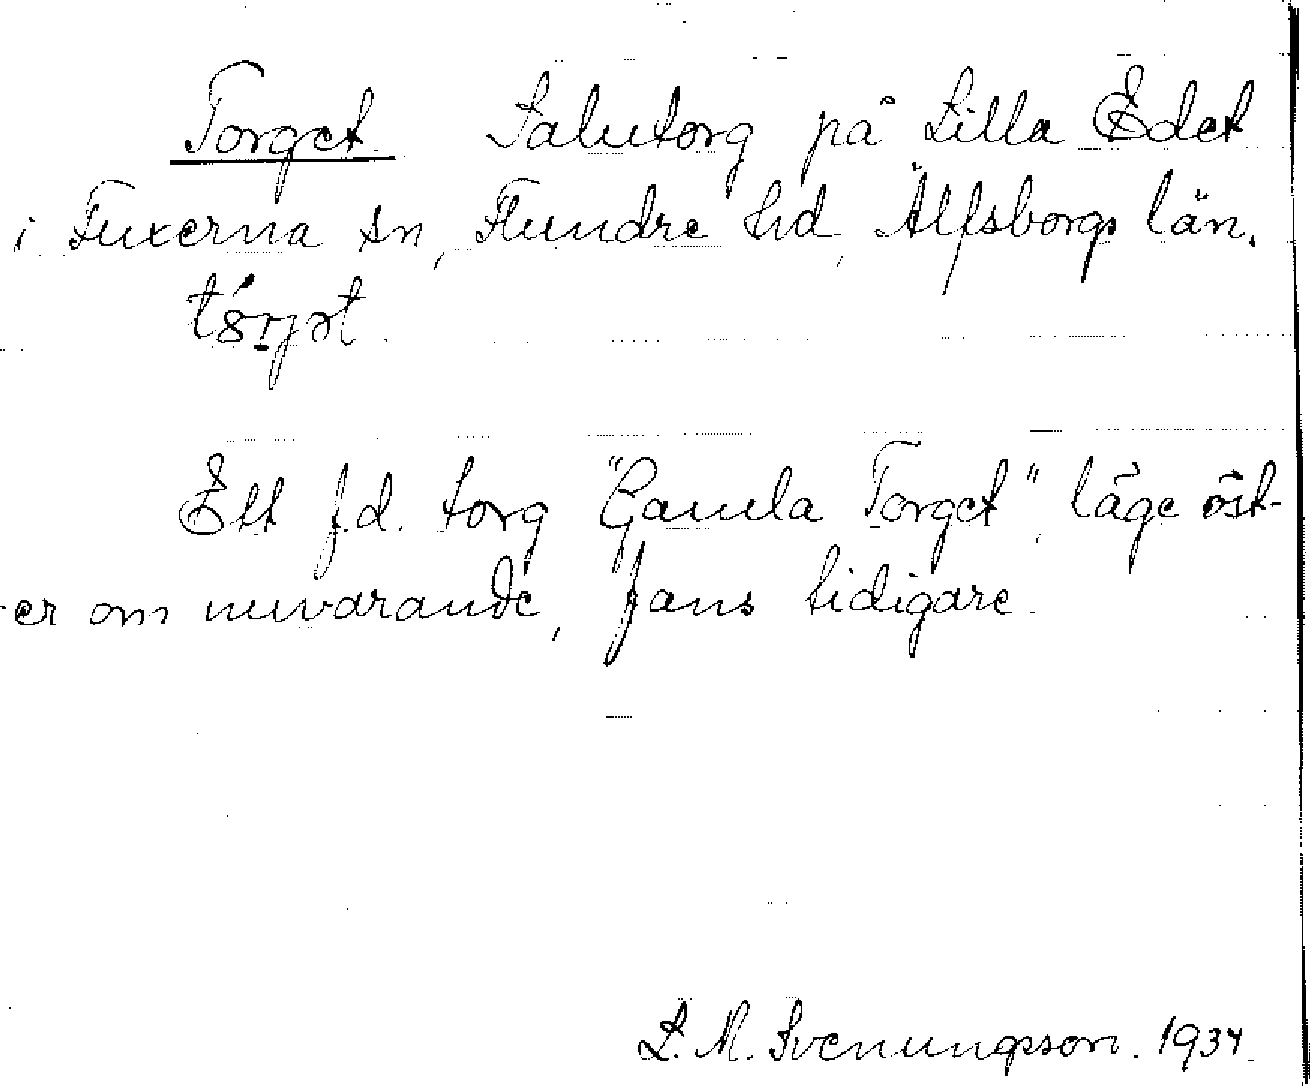 Torget. Salutorg på Lilla Edet
i Fuxerna sn, Flundre hd, Älfsborgs län.
Ett f.d. torg "Gamla Torget", läge öst-
er om nuvarande, fans tidigare.
L. M. Svenungson. 1934.